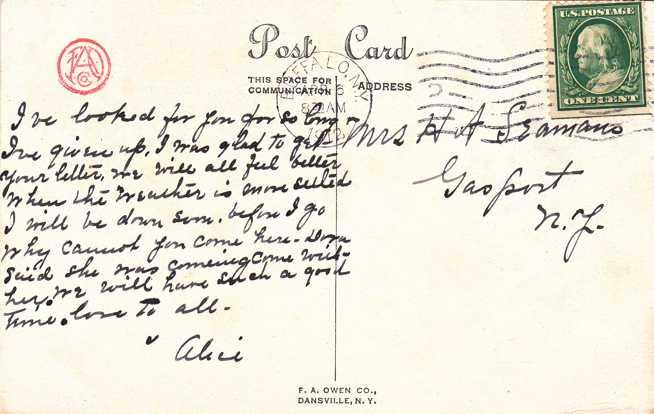 Post Card
THIS SPACE FOR
COMMUNICATION
ADDRESS
U.S. POSTAGE
ONE CENT
BUFFALO, N.Y.
8 AM
1912
I've looked for you for so long
I've given up, I was glad to get
your letter, we will all feel better
when the weather is more settled
I will be down soon, before I go
why cannot you come here - Dora
said she was comeing come with
her. We will have such a good
time. love to all -
Alice
Mrs H A Seamans
Gasport
N.Y.
F. A. OWEN CO.,
DANSVILLE, N.Y.